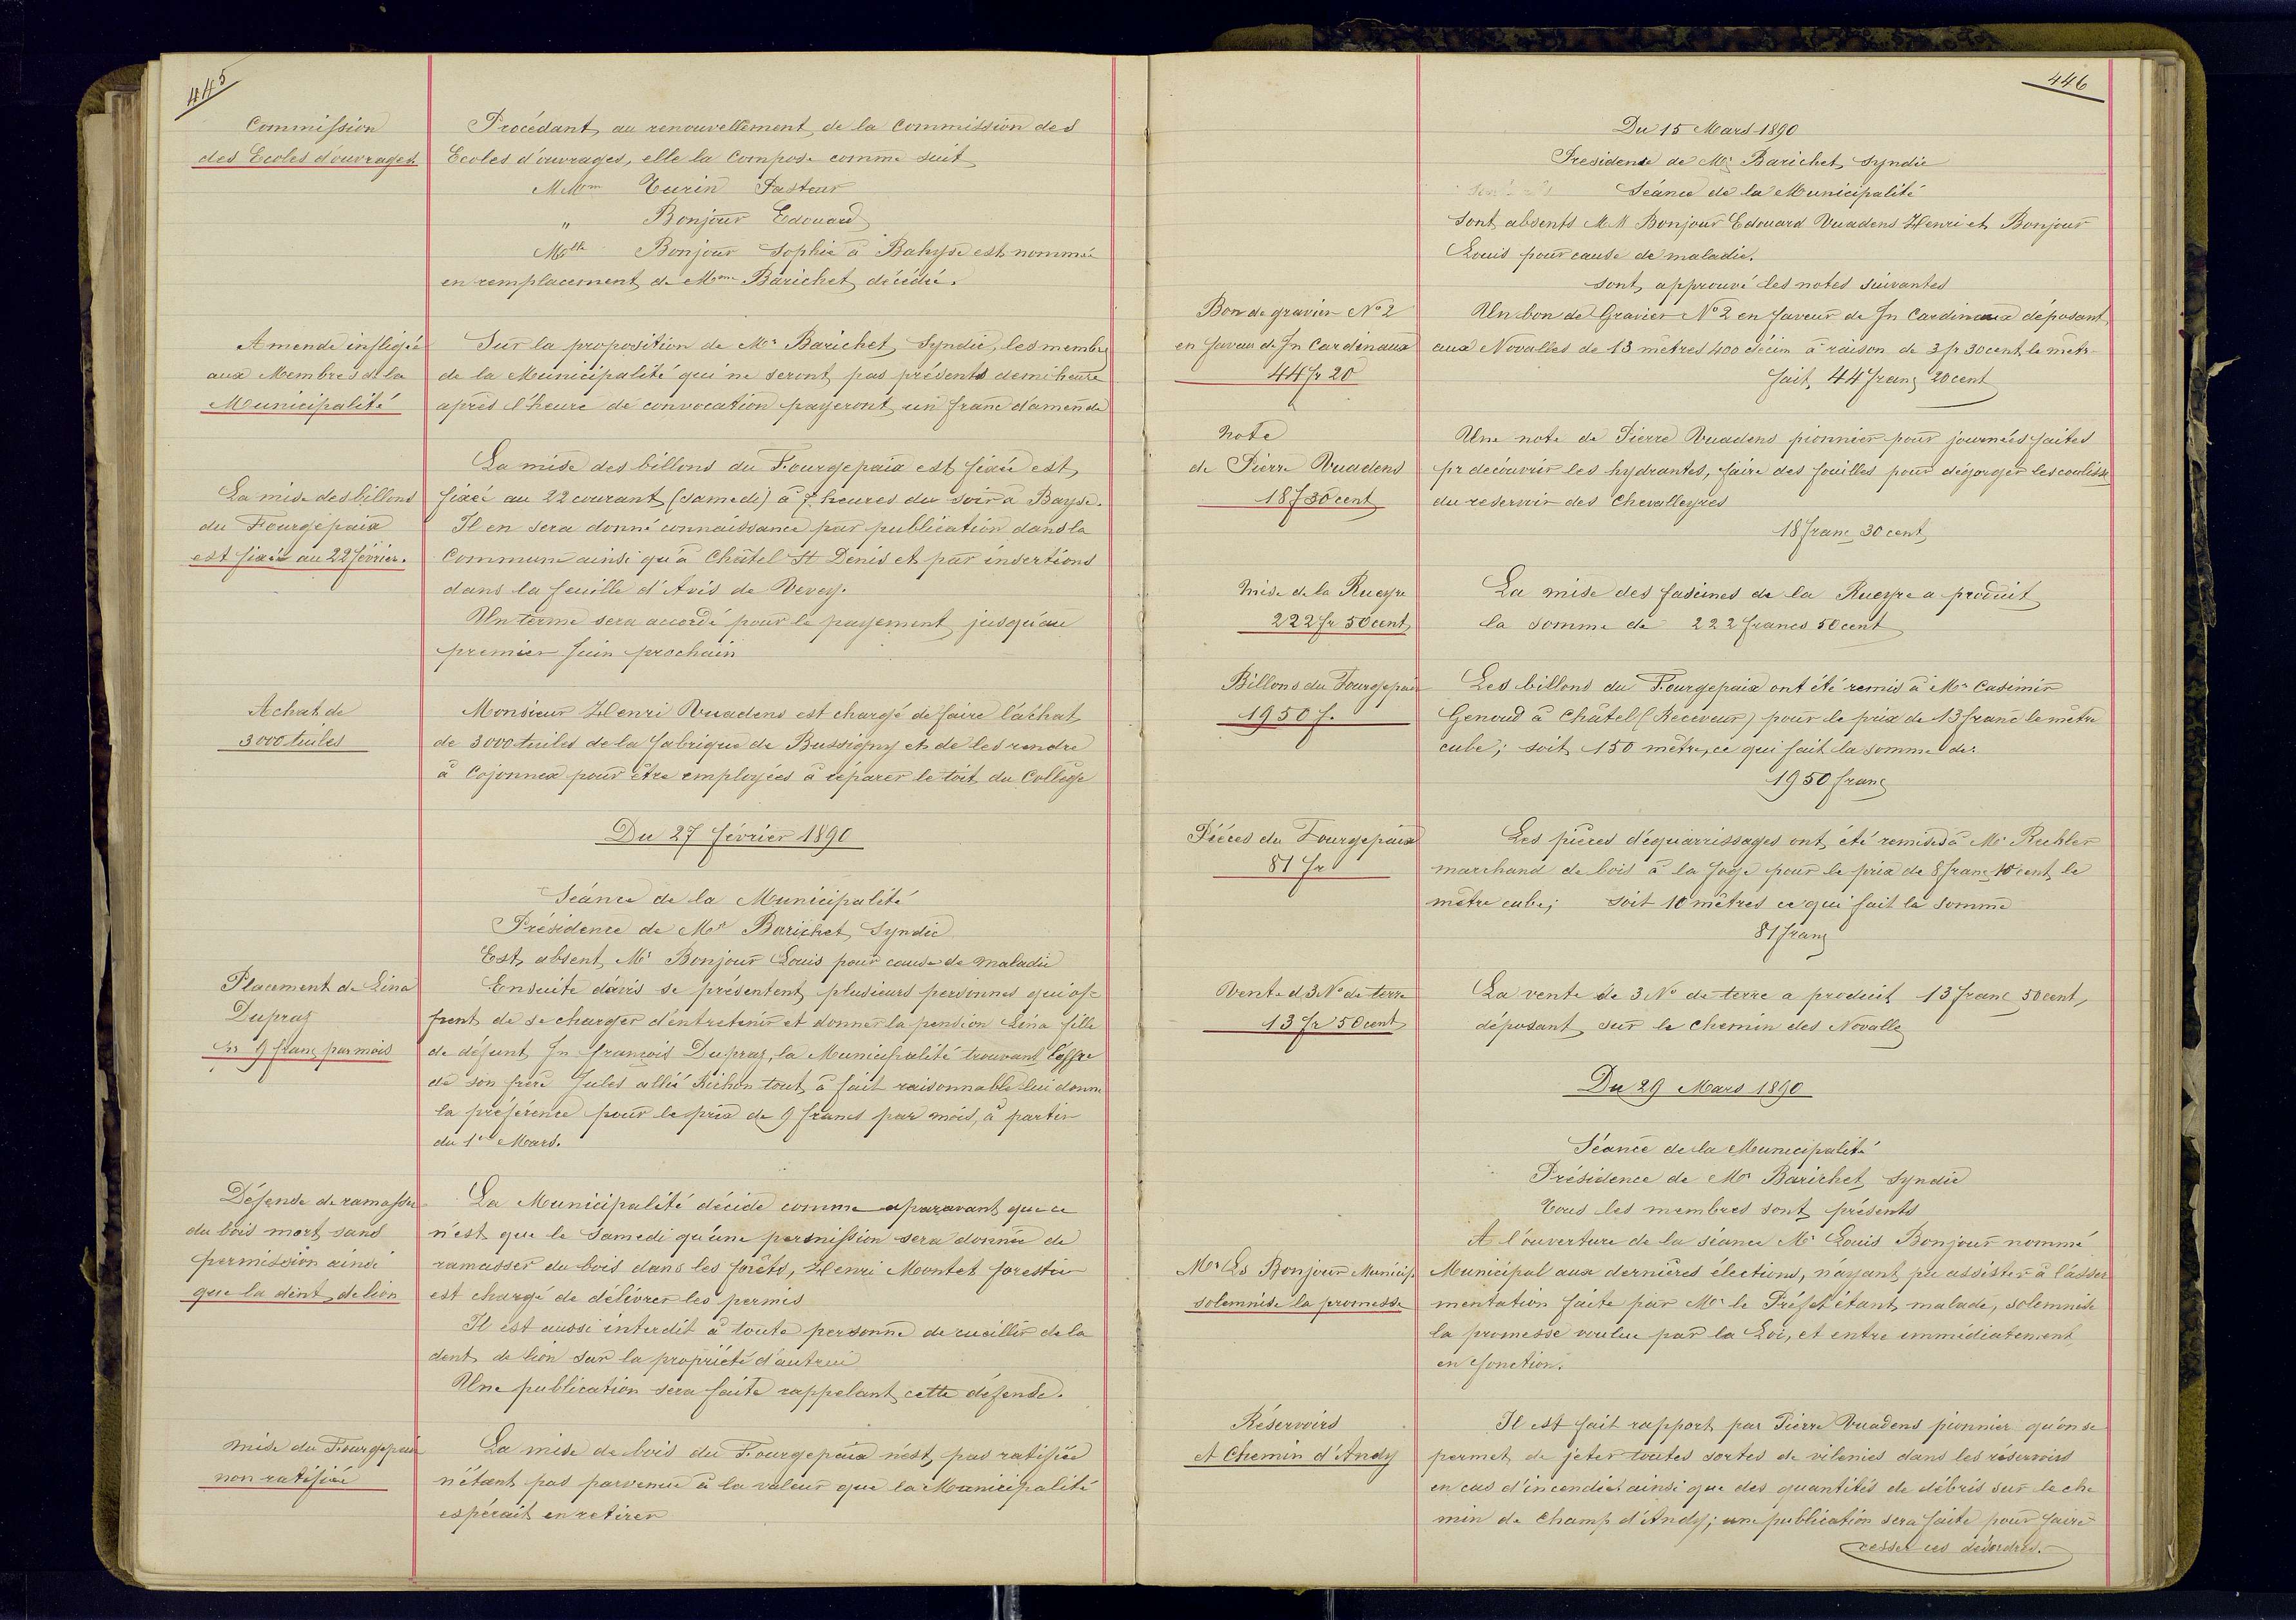 445
Commission
des Ecoles d'ouvrages
Procédant au renouvellement de la Commission des
Ecoles d'ouvrages, elle la Compose comme suit
Mme Turin Pasteur
" Bonjour Edouard
Melle Bonjour Sophie à Bahyse est nommée
en remplacement de Mme Barichet décédée.
Amende infligée
aux Membres de la
Municipalité
Sur la proposition de Mr Barichet, Syndic, les membre
de la Municipalité qui ne seront pas présents demi heure
après l'heure de convocation payeront un franc d'amende
La mise des billons
du Fourgepaix
est fixée au 22 février.
La mise des billons du Fourgepaix est fixée est
fixée au 22 courant (samedi) à 7 heures du soir à Bayse.
Il en sera donné connaissance par publication dans la
Commune ainsi qu'à Châtel St Denis et par insertions
dans la feuille d'Avis de Vevey.
Un terme sera accordé pour le payement jusqu'au
premier Juin prochain
Achat de
3000 tuiles
Monsieur Henri Vuadens est chargé de faire l'achat
de 3000 tuiles de la fabrique de Bussigny et de les rendre
à Cojonnex pour être employées à réparer le toit du Collège
Du 27 février 1890
Séance de la Municipalité
Présidence de Mr Barichet, Syndic
Est absent Mr Bonjour Louis pour cause de maladie
Placement de Lina
Dupraz
9 franc par mois
Ensuite d'avis se présentent plusieurs personnes qui of-
frent de se charger d'entretenir et donner la pension Lina fille
de défunt Jn françois Dupraz, la Municipalité trouvant l'offre
de son frère Jules allié Richon tout à fait raisonnable lui donne
la préférence pour le prix de 9 francs par mois, à partir
du 1er Mars.
Défense de ramasser
du bois mort sans
permission ainsi
que la dent de lion
La Municipalité décide comme aparavant que ce
n'est que le Samedi qu'une permission sera donnée de
ramasser du bois dans les forêts, Henri Montet forestier
est chargé de délivrer les permis
Il est aussi interdit à toute personne de cueillir de la
dent de lion sur la propriété d'autrui
Une publication sera faite rappelant cette défense.
Mise du Fourgepaix
non ratifiée
La mise de bois du Fourgepaix n'est pas ratifiée
n'étant pas parvenue à la valeur que la Municipalité
espérait en retirer
446
Du 15 Mars 1890
Présidence de Mr Barichet, Syndic
Séance de la Municipalité
Sont absents MM Bonjour Edouard Vuadens Henri et Bonjour
Louis pour cause de maladie.
sont approuvé les notes suivantes
Bon de gravier No 2
en faveur de Jn Cardinaux
44 fr 20
Un bon de Gravier No 2 en faveur de Jn Cardinaux déposant
aux Novalles de 13 mètres 400 décim à raison de 3 fr 30 cent le mètr-
fait 44 franc 20 cent
Note
de Pierre Vuadens
18 f 30 cent
Une note de Pierre Vuadens pionnier pour journées faites
pr découvrir les hydrantes, faire des fouilles pour dégorger les coulisse
du reservoir des Chevalleyres
18 franc 30 cent
Mise de la Rueyre
222 fr 50 cent
La mise des fascines de la Rueyre a produit
la somme de 222 francs 50 cent
Billons du Fourgepaix
1950 f.
Les billons du Fourgepaix ont été remis à Mr Casimir
Genoud à Châtel (Receveur) pour le prix de 13 franc le mètre
cube; soit 150 mètre, ce qui fait la somme de:
1950 franc
Pièces du Fourgepaix
81 fr
Les pièces d'équarrissages ont été remises à Mr Rubler
marchand de bois à la Joge pour le prix de 8 franc 10 cent le
mètre cube; soit 10 mètres ce qui fait la somme
81 franc
Vente d 3 No de terre
13 fr 50 cent
La vente de 3 No de terre a produit 13 franc 50 cent,
déposant sur le chemin des Novalle
Du 29 Mars 1890
Séance de la Municipalité
Présidence de Mr Barichet, Syndic
Tous les membres sont présents
Mr Ls Bonjour Municip.
solemnise la promesse
A l'ouverture de la séance Mr Louis Bonjour nommé
Municipal aux dernières élections, n'ayant pu assister à l'asser
mentation faite par Mr le Préfet étant malade, solemnise
la promesse voulue par la Loi, et entre immédiatement
en fonction.
Réservoirs
et Chemin d'Andy
Il est fait rapport par Pierre Vuadens pionnier qu'on se
permet de jeter toutes sortes de vilenies dans les réservoirs
en cas d'incendie et ainsi que des quantités de débris sur le che
min de Champ d'Andy; une publication sera faite pour faire
cesser ces désordres.